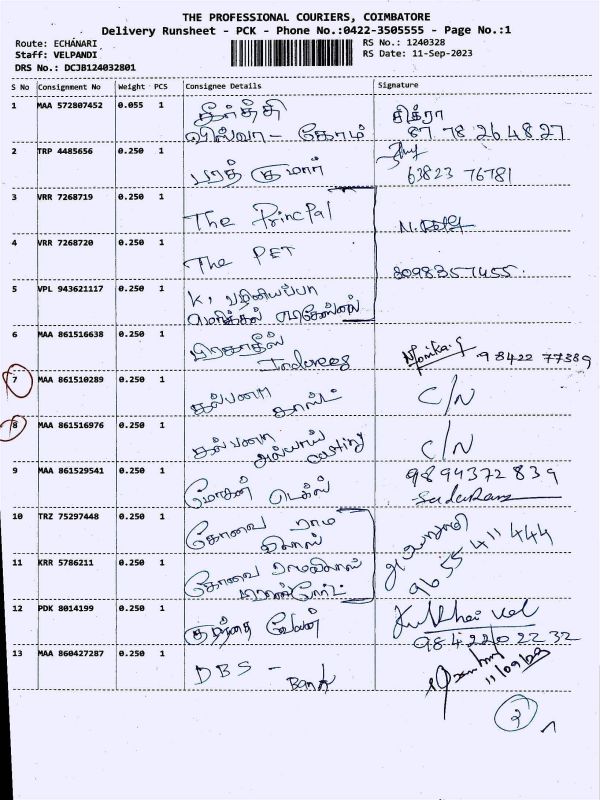 THE PROFESSIONAL COURIERS, COIMBATORE
Delivery Runsheet - PCK - Phone No.:0422-3505555 - Page No.:1
Route: ECHANARI RS No.: 1240328
Staff: VELPANDI RS Date: 11-Sep-2023
DRS No.: DCJB124032801
S No Consignment No Weight PCS Consignee Details Signature
1 MAA 572807452 0.055 1 கீர்த்தி சித்ரா
87 78 26 48 27
2 TRP 4485656 0.250 1 பரத் குமார்
63823 76781
3 VRR 7268719 0.250 1 The Principal
4 VRR 7268720 0.250 1 The PET
8098357455
5 VPL 943621117 0.250 1 K. பழனியப்பா
6 MAA 861516638 0.250 1 பிரகாதீஸ் 98422 77389
7 MAA 861510289 0.250 1 கல்பனா காஸ்ட் C/N
8 MAA 861516976 0.250 1 கல்பனா C/N
casting
9 MAA 861529541 0.250 1 மோகன் டெக்ஸ் 9894372839
10 TRZ 75297448 0.250 1 கோவை ராம
விலாஸ்
11 KRR 5786211 0.250 1 கோவை ராமவிலாஸ் 96 55 411 444
12 PDK 8014199 0.250 1 குழந்தை வேலன்
98422 02232
13 MAA 860427287 0.250 1 DBS -
Bank 11/09/23